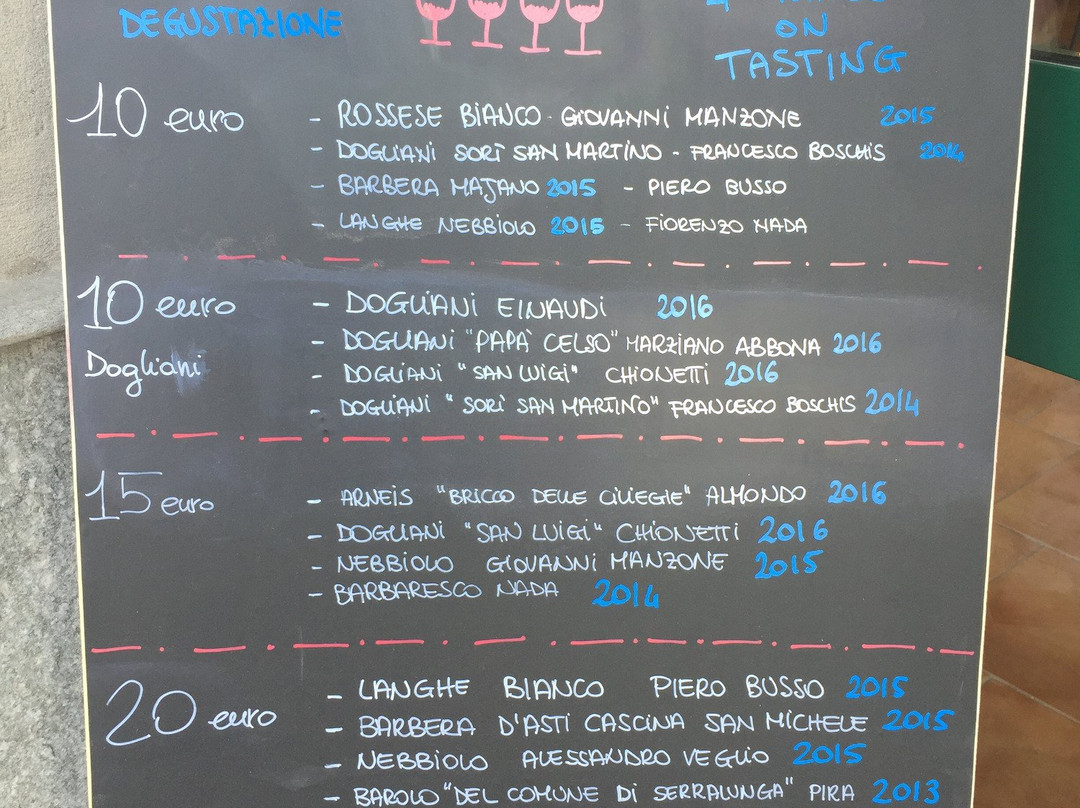 DEGUSTAZIONE
ON
TASTING
10 euro
- ROSSESE BIANCO - GIOVANNI MANZONE 2015
- DOGLIANI SORÌ SAN MARTINO - FRANCESCO BOSCHIS 2014
- BARBERA MAJANO 2015 - PIERO BUSSO
- LANGHE NEBBIOLO 2015 - FIORENZO NADA
10 euro
Dogliani
- DOGLIANI EINAUDI 2016
- DOGLIANI "PAPÀ CELSO" MARZIANO ABBONA 2016
- DOGLIANI "SAN LUIGI" CHIONETTI 2016
- DOGLIANI "SORÌ SAN MARTINO" FRANCESCO BOSCHIS 2014
15 euro
- ARNEIS "BRICCO DELLE CILIEGIE" ALMONDO 2016
- DOGLIANI "SAN LUIGI" CHIONETTI 2016
- NEBBIOLO GIOVANNI MANZONE 2015
- BARBARESCO NADA 2014
20 euro
- LANGHE BIANCO PIERO BUSSO 2015
- BARBERA D'ASTI CASCINA SAN MICHELE 2015
- NEBBIOLO ALESSANDRO VEGLIO 2015
- BAROLO "DEL COMUNE DI SERRALUNGA" PIRA 2013